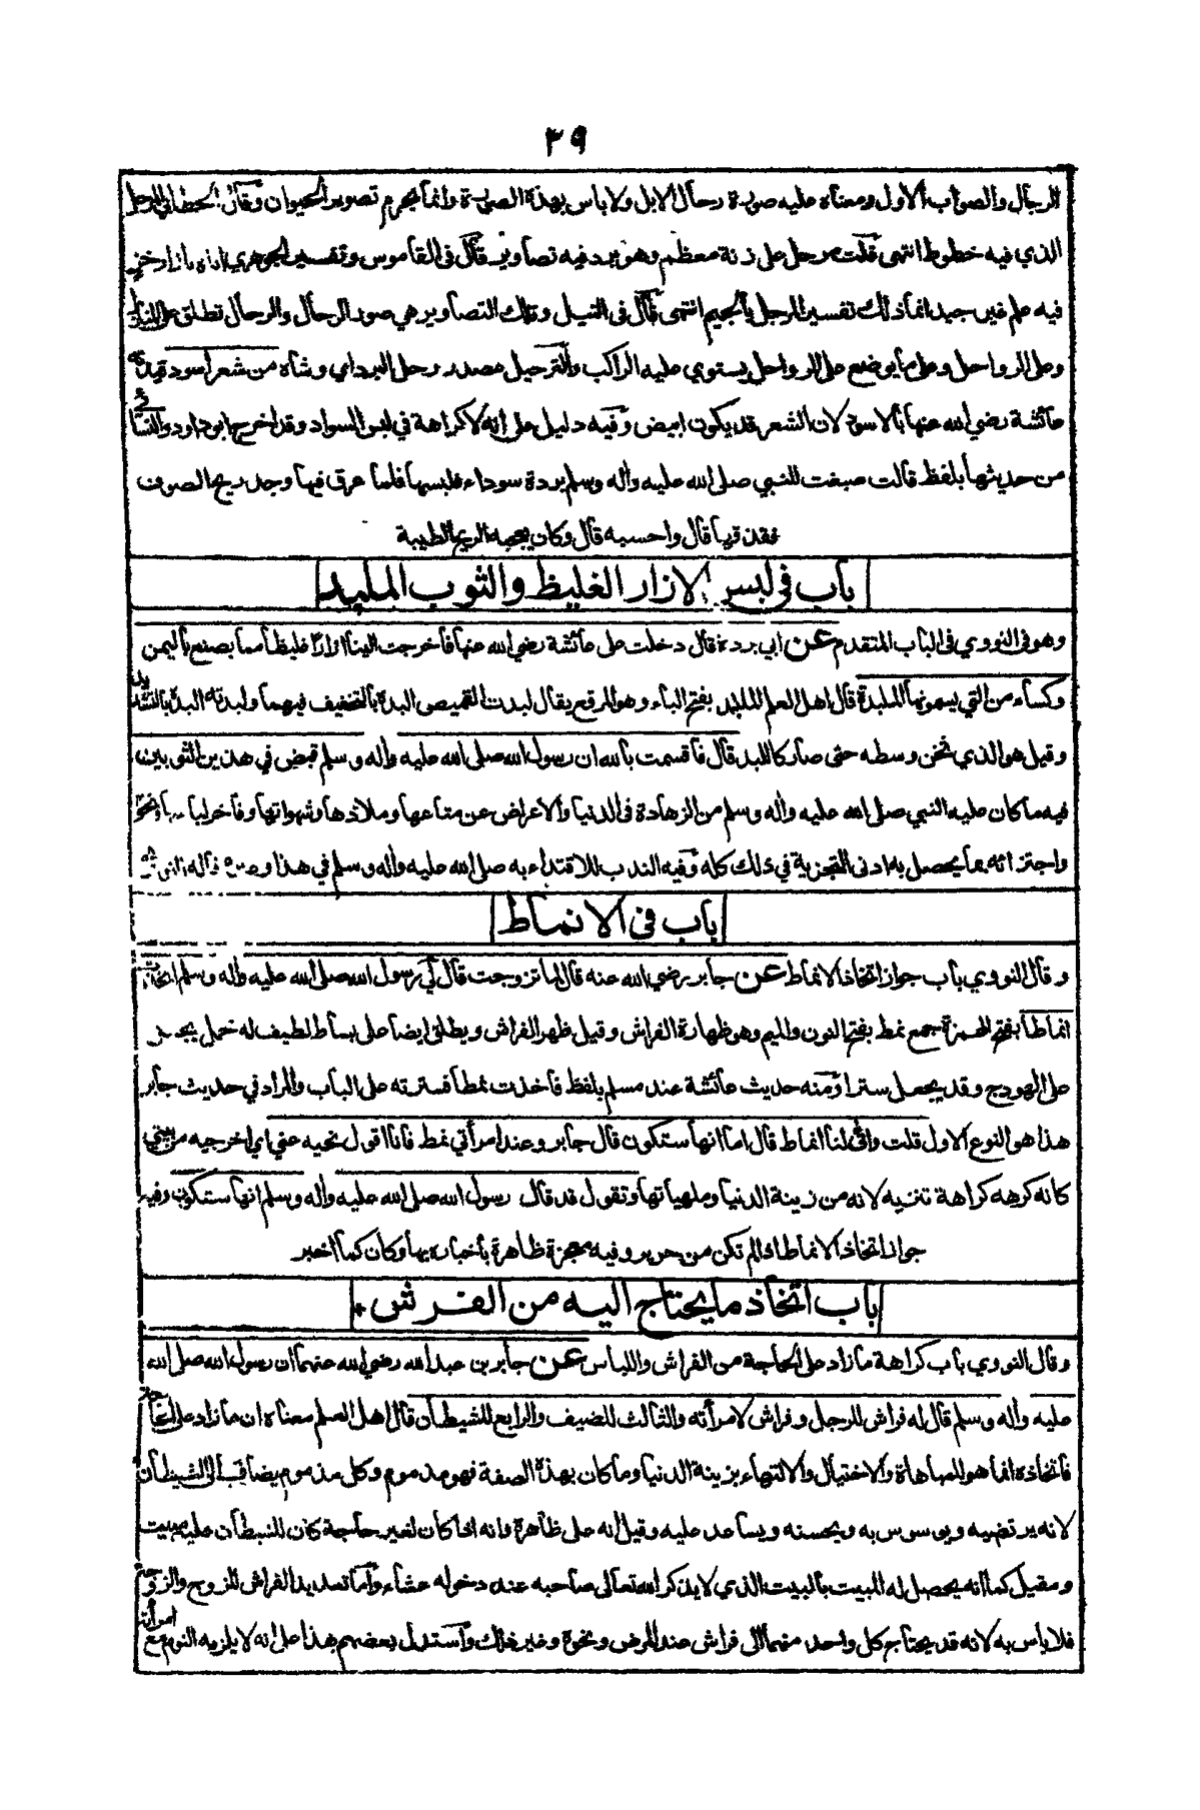 ٣٩
الرجال والصواب الاول ومعناه عليه صورة رحال الابل ولا باس بهذه الصورة وانما يحرم تصوير الحيوان وقال الخطابي المرحل
الذي فيه خطوط انتهى قلت مرحل على زنة معظم وهو برد فيه تصاوير قال في القاموس وتفسير الجوهري اياه بازار خز
فيه علم غير جيد انما ذلك تفسير المرجل بالجيم انتهى قال في النيل وتلك التصاوير هي صور الرحال والرحال تطلق على المنازل
وعلى الرواحل وعلى ما يوضع على الرواحل يستوي عليه الراكب والترحيل مصدر رحل البرد اي وشاه من شعر اسود قيدته
عائشة رضي الله عنها بالاسود لان الشعر قد يكون ابيض وفيه دليل على انه لا كراهة في لبس السواد وقد اخرج ابو داود والنسائي
من حديثها بلفظ قالت صبغت للنبي صلى الله عليه واله وسلم بردة سوداء فلبسها فلما عرق فيها وجد ريح الصوف
فقذفها قال واحسبه قال وكان يعجبه الريح الطيبة
باب في لبس الازار الغليظ والثوب الملبد
وهو في النووي في الباب المتقدم عن ابي بردة قال دخلت على عائشة رضي الله عنها فاخرجت الينا ازارا غليظا مما يصنع باليمن
وكساء من التي يسمونها الملبدة قال اهل العلم الملبد بفتح الباء وهو المرقع يقال لبدت القميص البده بالتخفيف فيهما ولبدته البده بالتشديد
وقيل هو الذي ثخن وسطه حتى صار كاللبد قال فاقسمت بالله ان رسول الله صلى الله عليه واله وسلم قبض في هذين الثوبين
فيه ما كان عليه النبي صلى الله عليه واله وسلم من الزهادة في الدنيا والاعراض عن متاعها وملاذها وشهواتها وفاخر لباسها ونحوه
واجتزائه بما يحصل به ادنى التجزية في ذلك كله وفيه الندب للاقتداء به صلى الله عليه واله وسلم في هذا وغيره قاله النووي
باب في الانماط
وقال النووي باب جواز اتخاذ الانماط عن جابر رضي الله عنه قال لما تزوجت قال لي رسول الله صلى الله عليه واله وسلم اتخذت
انماطا بفتح الهمزة جمع نمط بفتح النون والميم وهو ظهارة الفراش وقيل ظهر الفراش ويطلق ايضا على بساط لطيف له خمل يجعل
على الهودج وقد يجعل سترا ومنه حديث عائشة عند مسلم بلفظ فاخذت نمطا فسترته على الباب والمراد في حديث جابر
هذا هو النوع الاول قلت وانى لنا انماط قال اما انها ستكون قال جابر وعند امرأتي نمط فانا اقول نحيه عني اي اخرجيه من بيتي
كانه كرهه كراهة تنزيه لانه من زينة الدنيا وملهياتها وتقول قد قال رسول الله صلى الله عليه واله وسلم انها ستكون وفيه
جواز اتخاذ الانماط اذا لم تكن من حرير وفيه معجزة ظاهرة باخباره بها وكان كما اخبر
باب اتخاذ ما يحتاج اليه من الفرش
وقال النووي باب كراهة ما زاد على الحاجة من الفراش واللباس عن جابر بن عبد الله رضي الله عنهما ان رسول الله صلى الله
عليه واله وسلم قال له فراش للرجل وفراش لامرأته والثالث للضيف والرابع للشيطان قال اهل العلم معناه ان ما زاد على الحاجة
فاتخاذه انما هو للمباهاة والاختيال والالتهاء بزينة الدنيا وما كان بهذه الصفة فهو مذموم وكل مذموم يضاف الى الشيطان
لانه يرتضيه ويوسوس به ويحسنه ويساعد عليه وقيل انه على ظاهره وانه اذا كان لغير حاجة كان للشيطان عليه مبيت
ومقيل كما انه يحصل له المبيت بالبيت الذي لا يذكر الله تعالى صاحبه عند دخوله عشاء واما تعديد الفراش للزوج والزوجة
فلا باس به لانه قد يحتاج كل واحد منهما الى فراش عند المرض ونحوه وغير ذلك واستدل بعضهم بهذا على انه لا يلزمه النوم مع امرأته